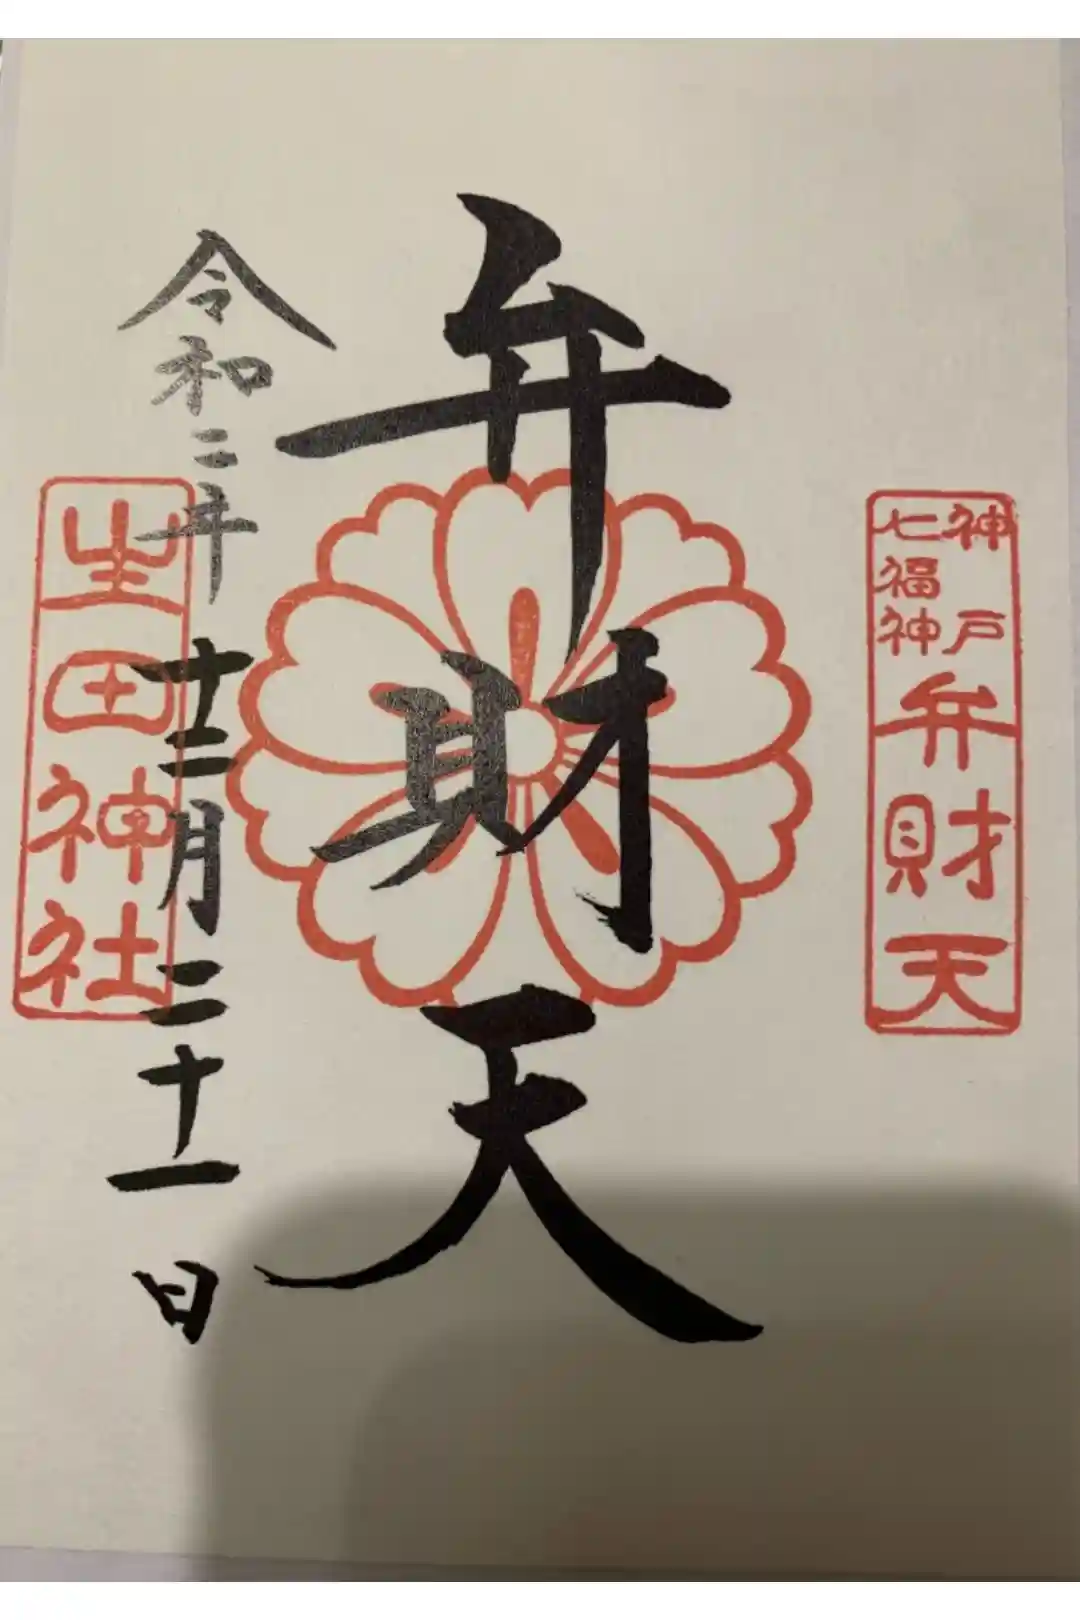 神戸
七福神
弁財天
弁財天
令和二年十二月二十一日
生田神社